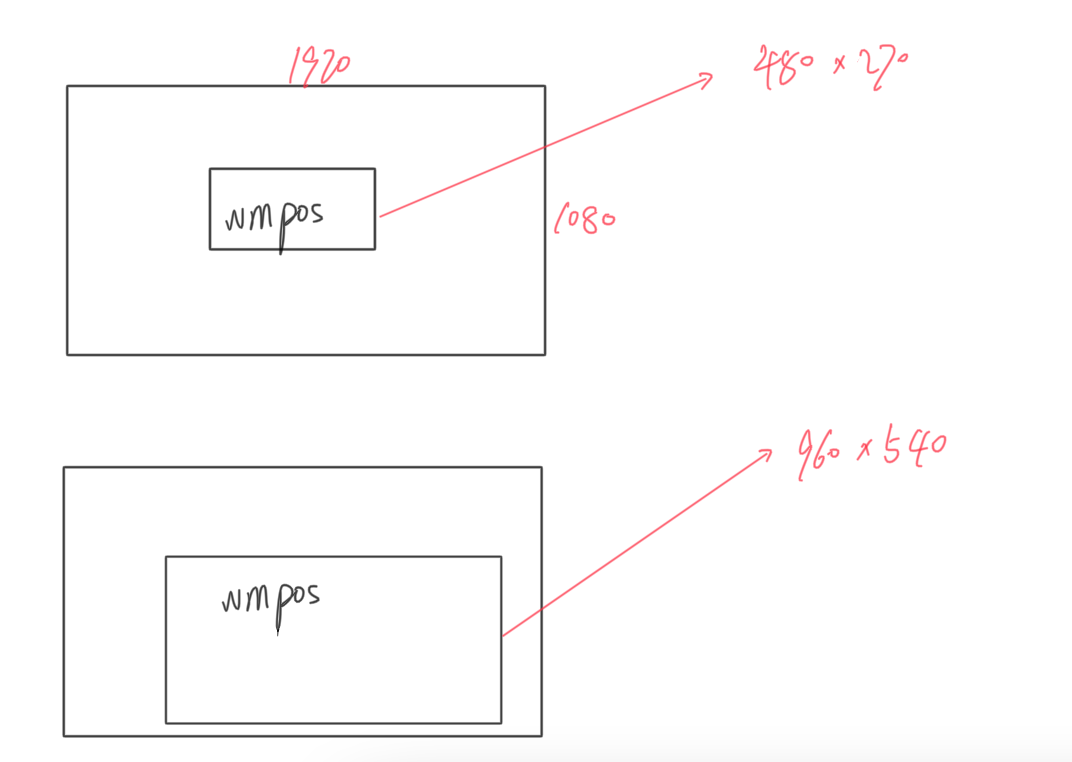 1920
480 × 270
wmpos
1080
960 × 540
wmpos